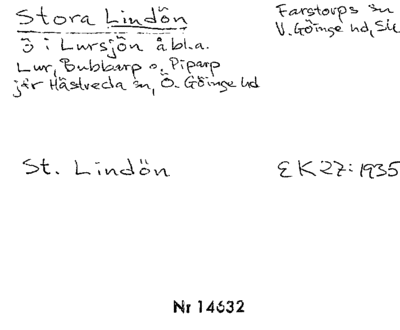 Stora Lindön
Farstorps sn
V. Göinge hd,
ö i Lursjön å bl.a.
Lur, Bubbarp o. Piparp
jfr Hästveda sn, Ö. Göinge hd
St. Lindön
EK 27:1935
Nr 14632